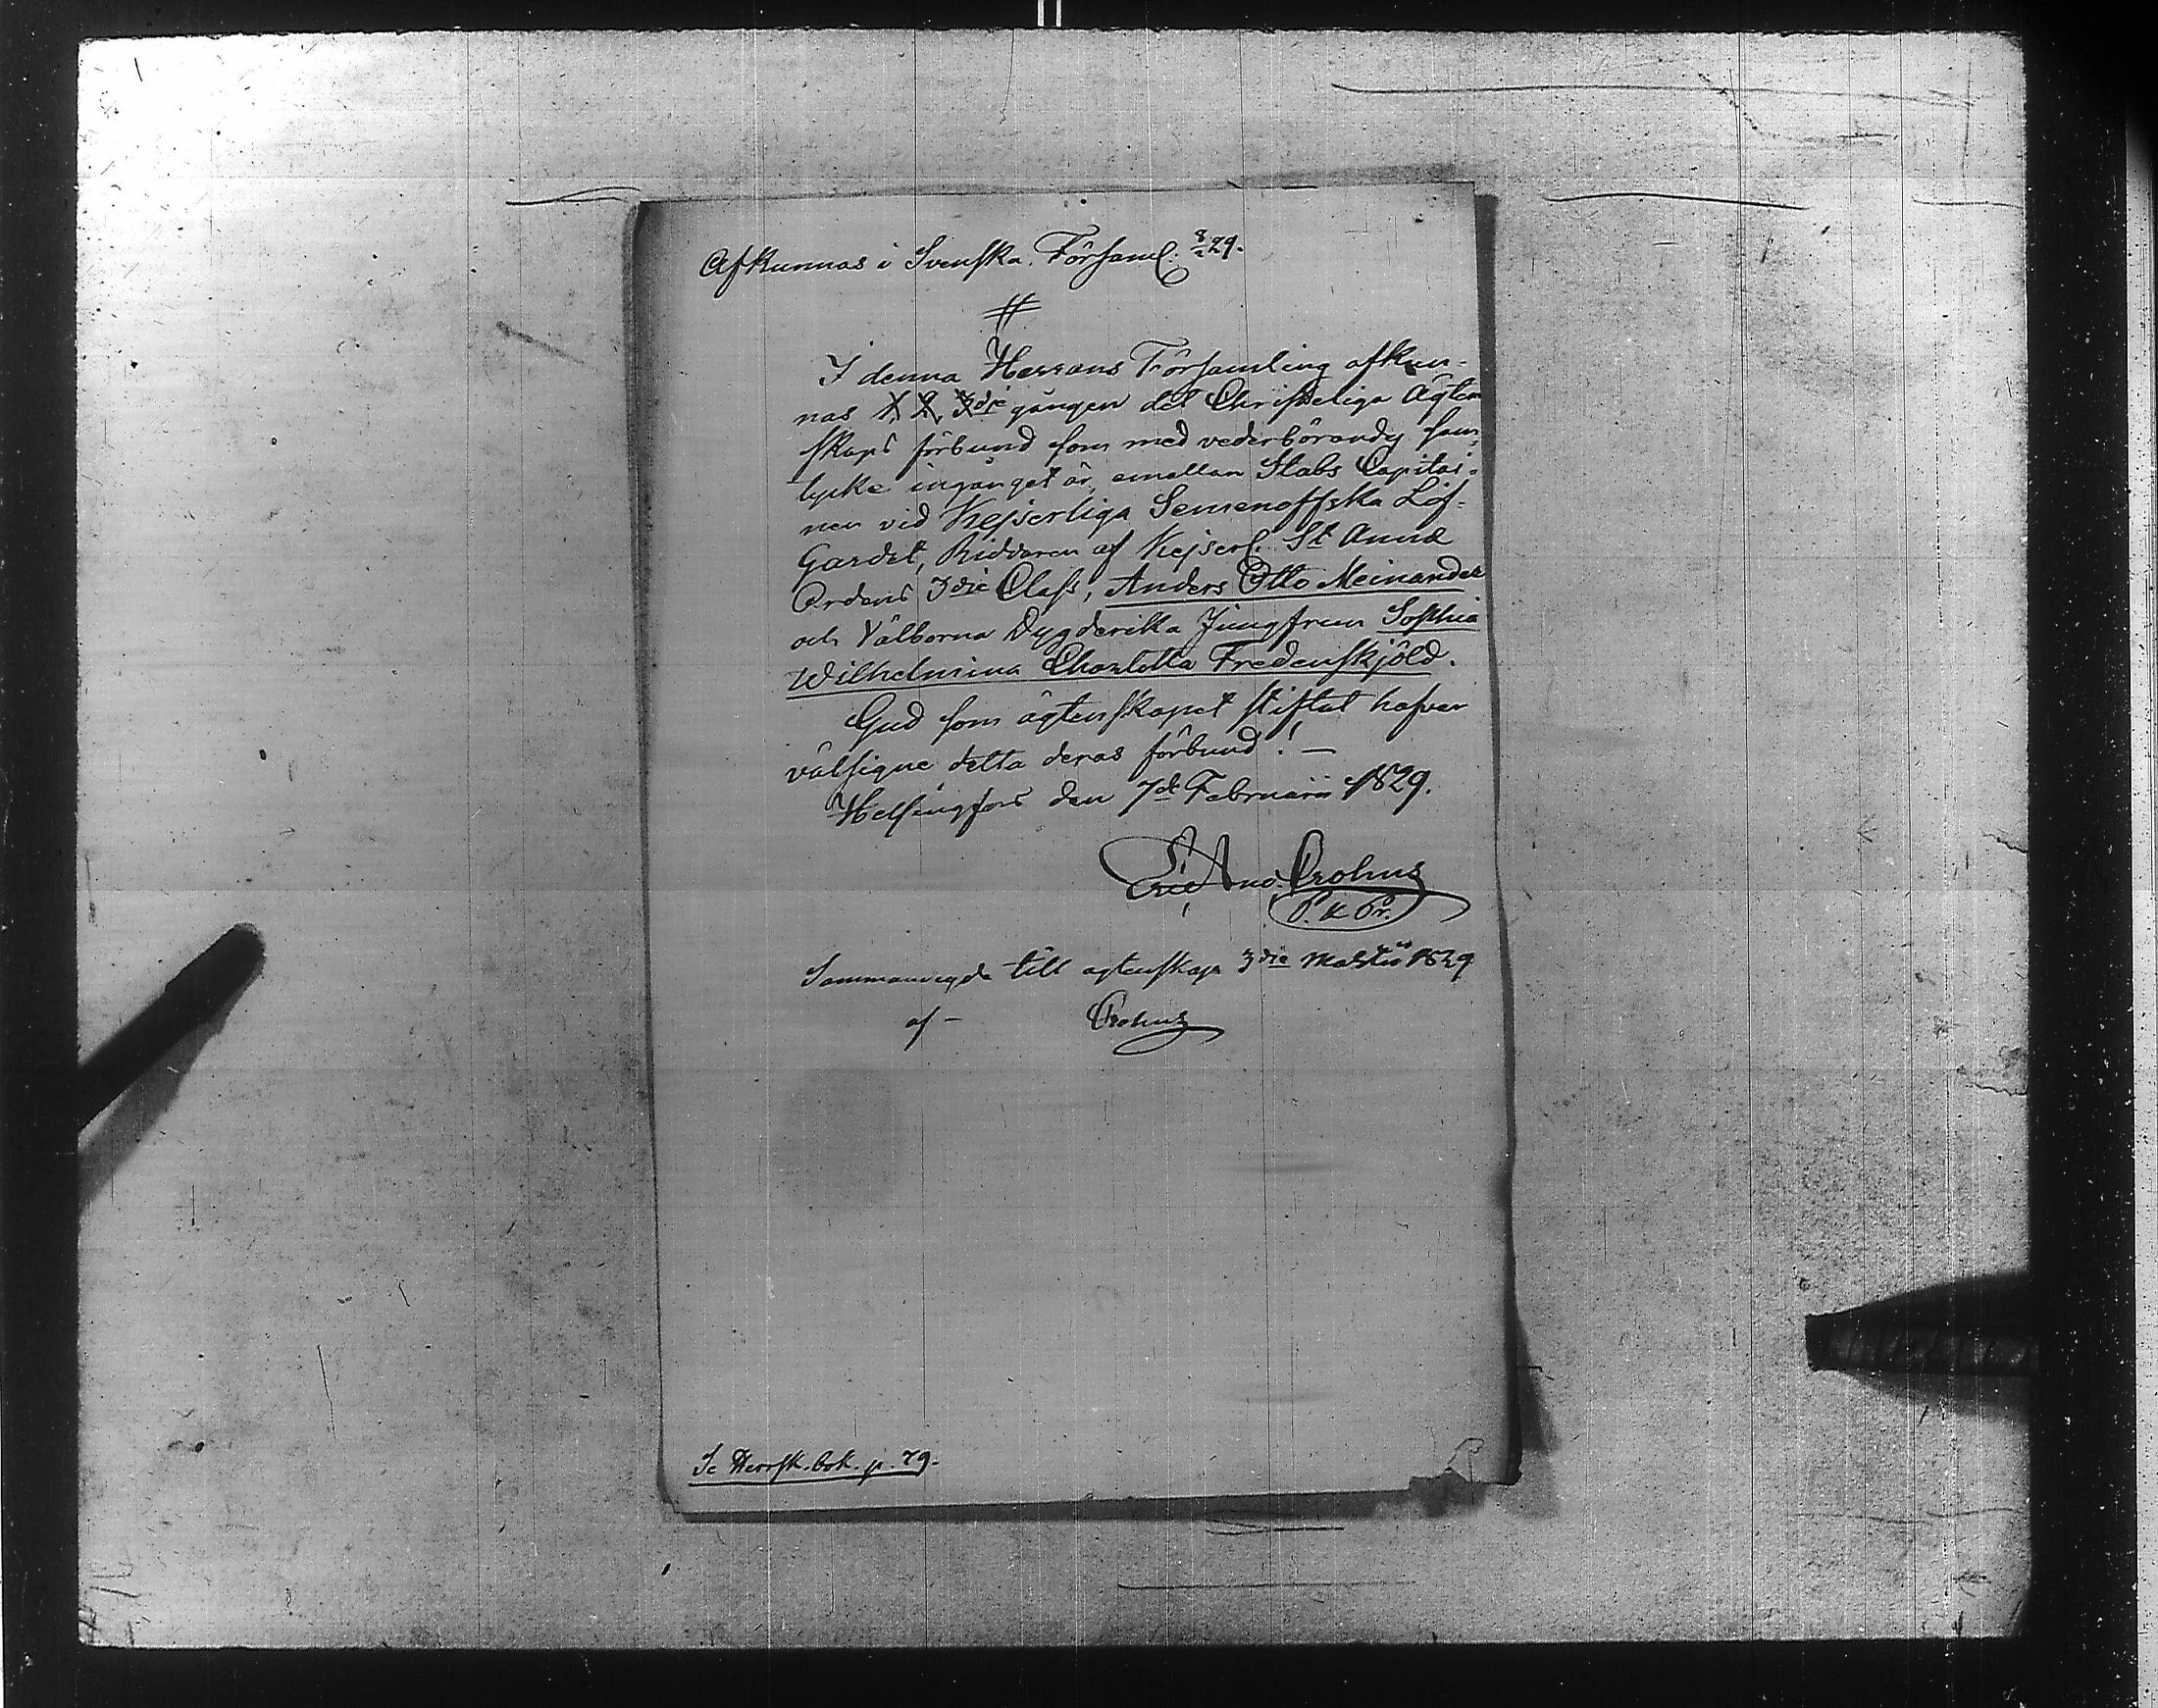 Afkunnas i Svenska Församl. 8/2 29.
I denna Herrans Församling afkun-
nas 1, 2, 3die gången det Christeliga Ägten
skaps förbund som med vederbörandes sam-
tycke ingånget är, emellan Stabs Capitai-
nen vid Kejserliga Semenoffska Lif-
Gardet, Riddaren af Kejserl. St Annæ
Ordens 3die Class, Anders Otto Meinander
och Välborna Dygderika Jungfrun Sophia
Wilhelmina Charlotta Fredenskjöld.
Gud som ägtenskapet stiftat hafver
välsigne detta deras förbund! —
Helsingfors den 7de Februarii 1829.
Eric And. Crohns
P. K. Pr.
Sammanvigde till ägtenskap 3die Martii 1829
af — Crohns
Se Herrsk. bok. p. 79.